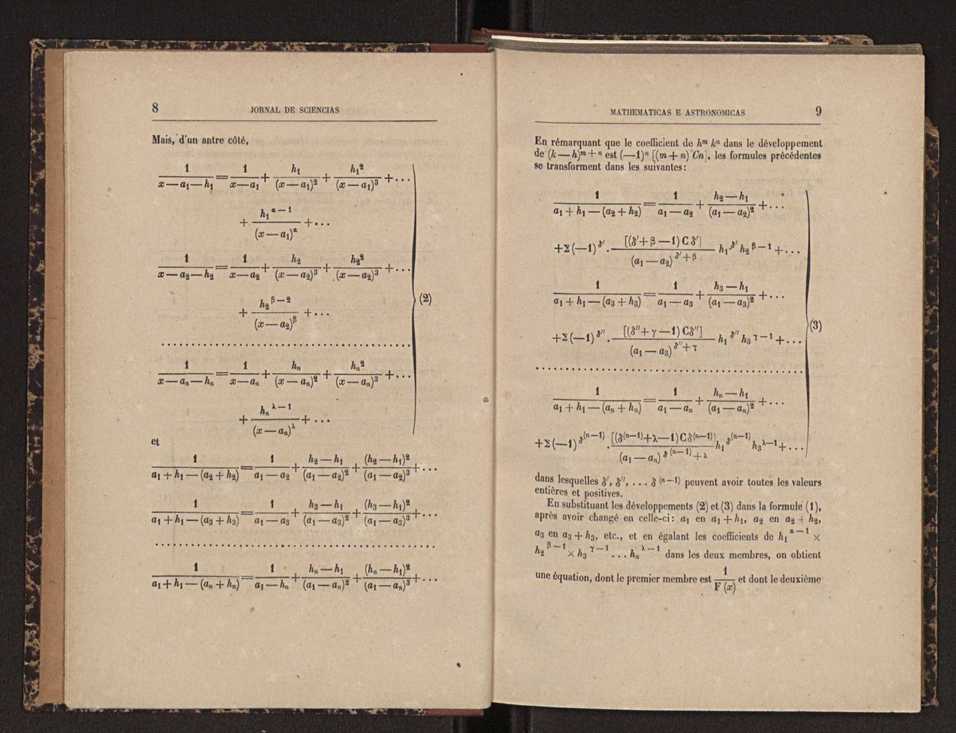 8 JORNAL DE SCIENCIAS
Mais, d'un antre côté,
1/(x—a₁—h₁) = 1/(x—a₁) + h₁/(x—a₁)² + h₁²/(x—a₁)³ + ...
+ h₁^(α—1)/(x—a₁)^α + ...
1/(x—a₂—h₂) = 1/(x—a₂) + h₂/(x—a₂)³ + h₂²/(x—a₂)³ + ...
+ h₂^(β—2)/(x—a₂)^β + ...
(2)
1/(x—aₙ—hₙ) = 1/(x—aₙ) + hₙ/(x—aₙ)² + hₙ²/(x—aₙ)³ + ...
+ hₙ^(λ—1)/(x—aₙ)^λ + ...
et
1/(a₁+h₁—(a₂+h₂)) = 1/(a₁—a₂) + (h₂—h₁)/(a₁—a₂)² + (h₂—h₁)²/(a₁—a₂)³ + ...
1/(a₁+h₁—(a₃+h₃)) = 1/(a₁—a₃) + (h₃—h₁)/(a₁—a₃)² + (h₃—h₁)²/(a₁—a₃)³ + ...
1/(a₁+h₁—(aₙ+hₙ)) = 1/(a₁—hₙ) + (hₙ—h₁)/(a₁—aₙ)² + (hₙ—h₁)²/(a₁—aₙ)³ + ...
MATHEMATICAS E ASTRONOMICAS 9
En rémarquant que le coefficient de hᵐ kⁿ dans le développement
de (k—h)ᵐ⁺ⁿ est (—1)ⁿ [(m+n) Cn], les formules précédentes
se transforment dans les suivantes:
1/(a₁+h₁—(a₂+h₂)) = 1/(a₁—a₂) + (h₂—h₁)/(a₁—a₂)² + ...
+Σ(—1)^δ′ . [(δ′+β—1) C δ′]/(a₁—a₂)^(δ′+β) h₁^δ′ h₂^(β—1) + ...
1/(a₁+h₁—(a₃+h₃)) = 1/(a₁—a₃) + (h₃—h₁)/(a₁—a₃)² + ...
(3)
+Σ(—1)^δ″ . [(δ″+γ—1) Cδ″]/(a₁—a₃)^(δ″+γ) h₁^δ″ h₃^(γ—1) + ...
1/(a₁+h₁—(aₙ+hₙ)) = 1/(a₁—aₙ) + (hₙ—h₁)/(a₁—aₙ)² + ...
+Σ(—1)^δ⁽ⁿ⁻¹⁾ . [(δ⁽ⁿ⁻¹⁾+λ—1) Cδ⁽ⁿ⁻¹⁾]/(a₁—aₙ)^(δ⁽ⁿ⁻¹⁾+λ) h₁^δ⁽ⁿ⁻¹⁾ h₃^(λ—1) + ...
dans lesquelles δ′, δ″, ... δ⁽ⁿ⁻¹⁾ peuvent avoir toutes les valeurs
entières et positives.
En substituant les développements (2) et (3) dans la formule (1),
après avoir changé en celle-ci: a₁ en a₁+h₁, a₂ en a₂+h₂,
a₃ en a₃+h₃, etc., et en égalant les coefficients de h₁^(α—1) ×
h₂^(β—1) × h₃^(γ—1) ... hₙ^(λ—1) dans les deux membres, on obtient
une équation, dont le premier membre est 1/F(x) et dont le deuxième